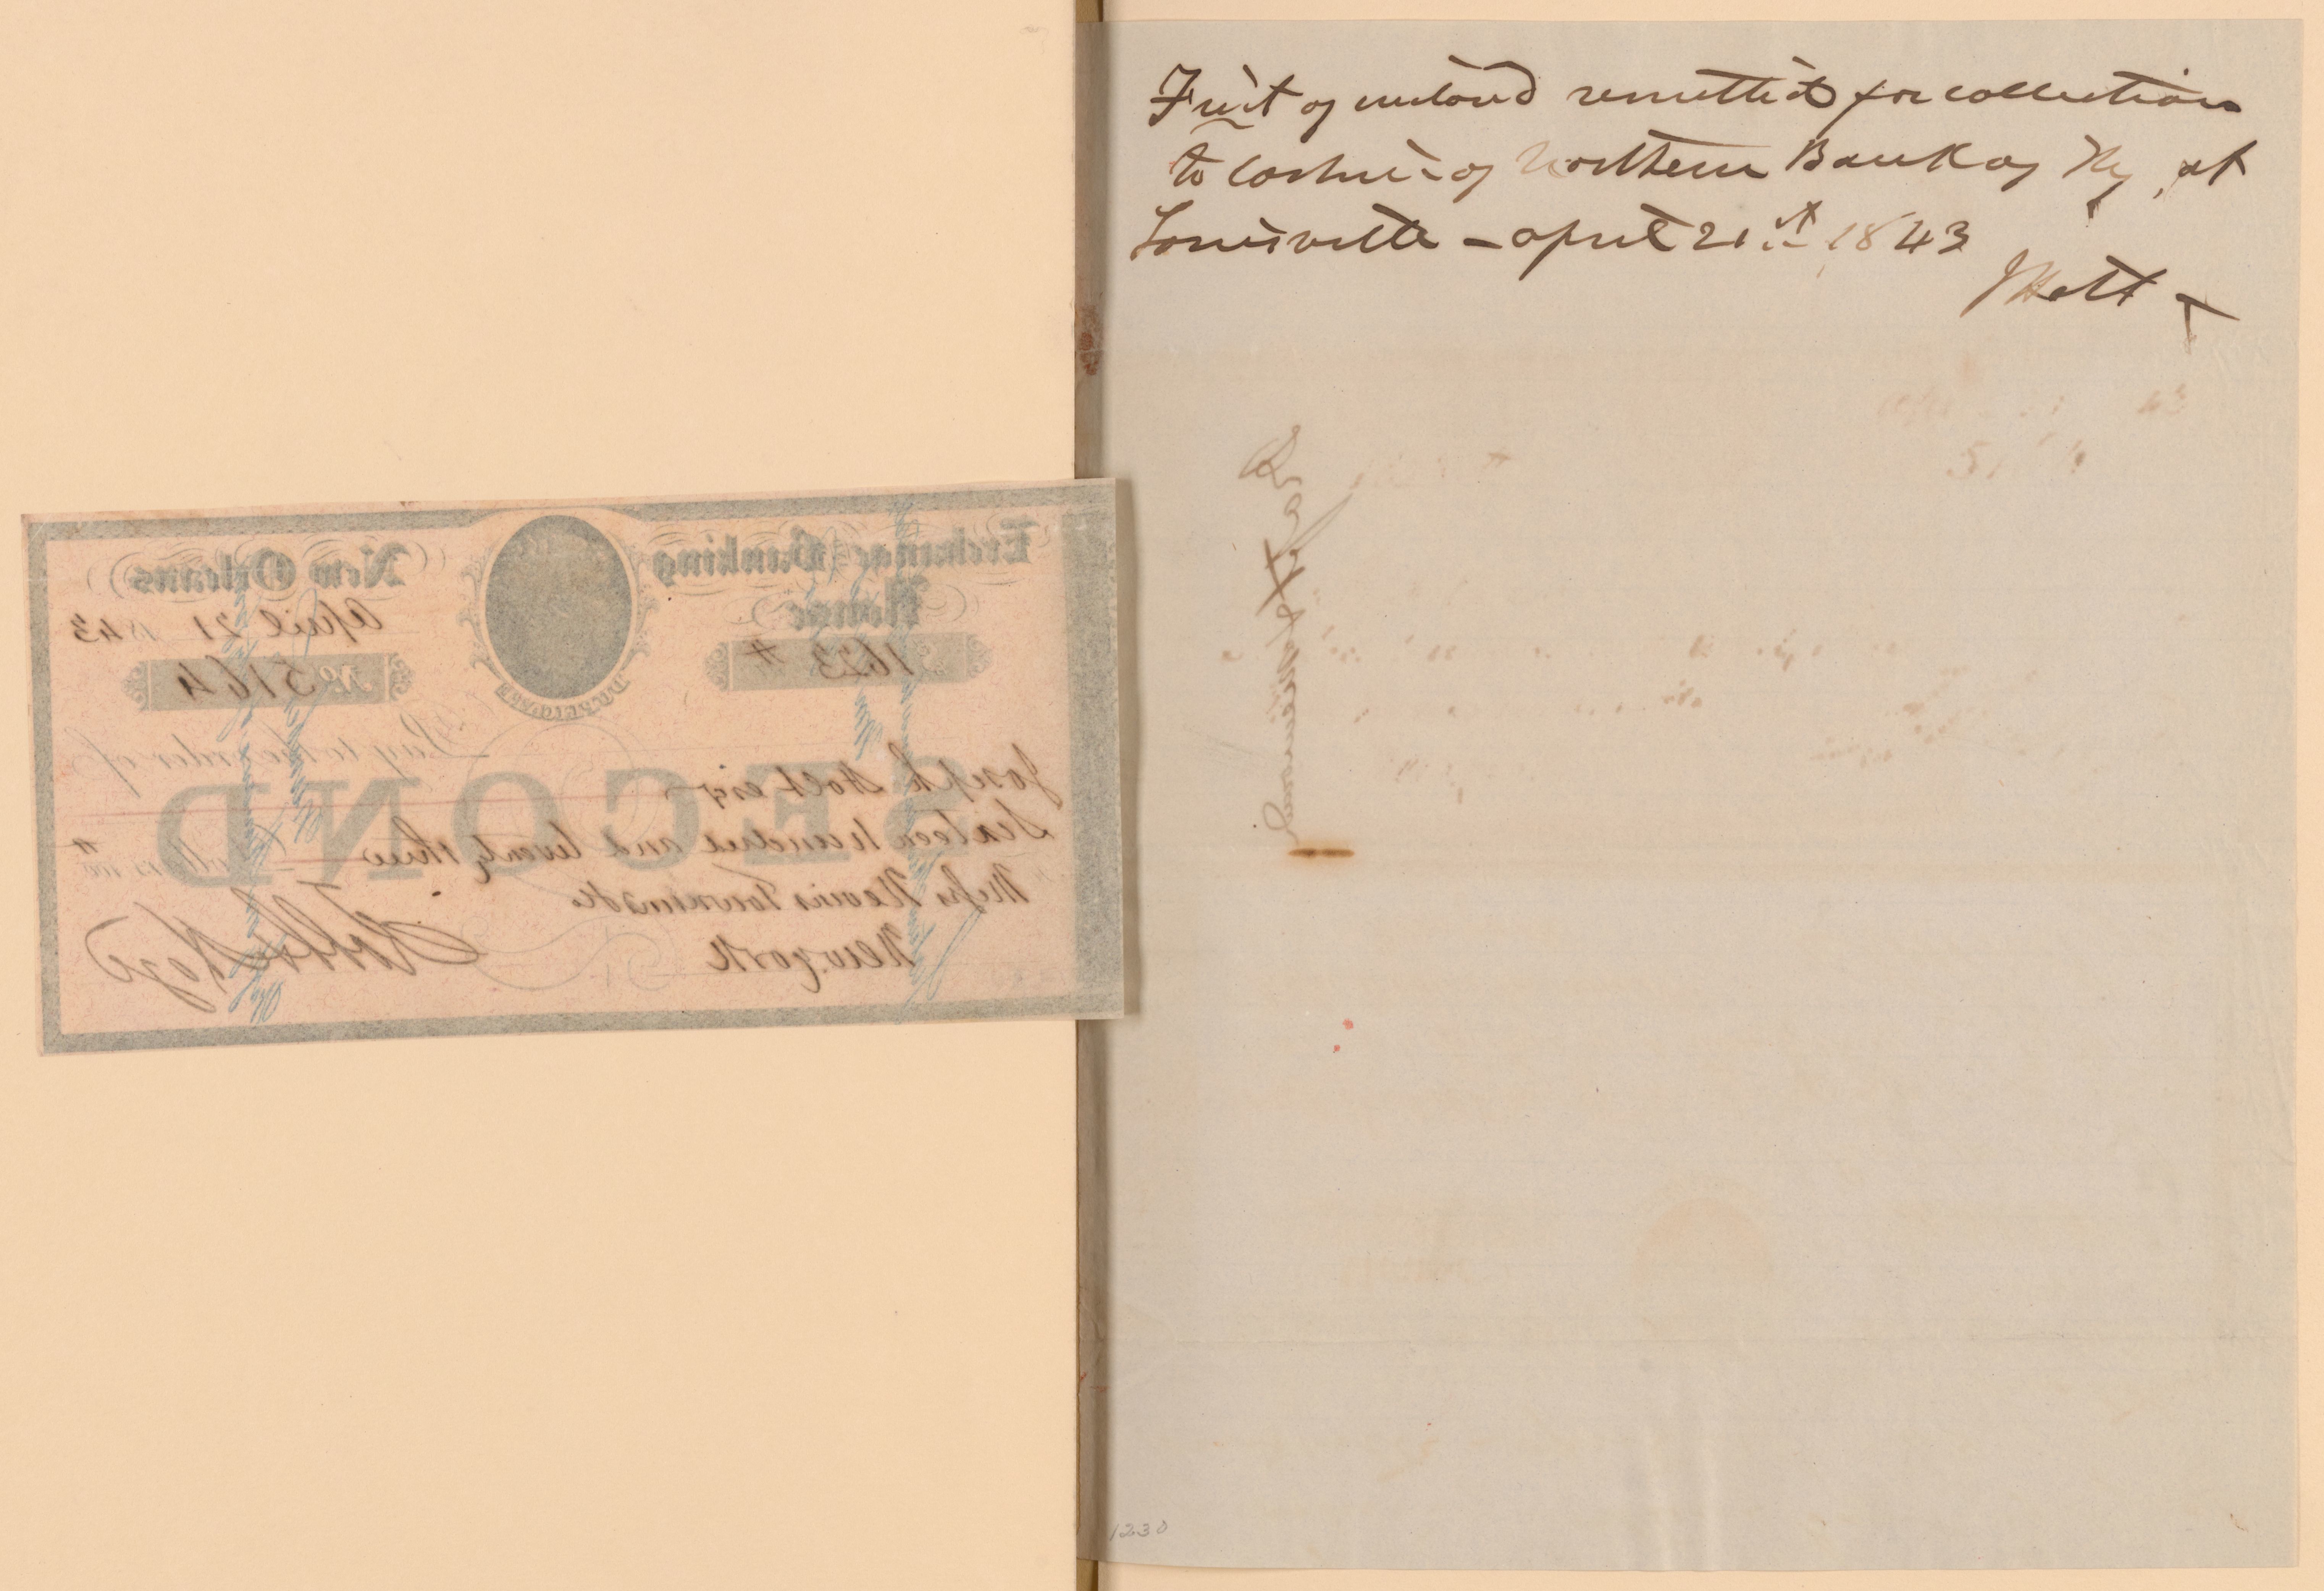 Exchange & Banking
House
New Orleans
April 21 1843
$ 1623 #
No. 5164
DUPLICATE
Pay to the order of
Joseph Holt esqr
Sixteen hundred and twenty three
Dollars
SECOND
Messs Nevins Townsend &c
New York
First of within remitted for collection
to Cashier of Northern Bank of Ky, at
Louisville - April 21st 1843
J Holt
Draft
1230